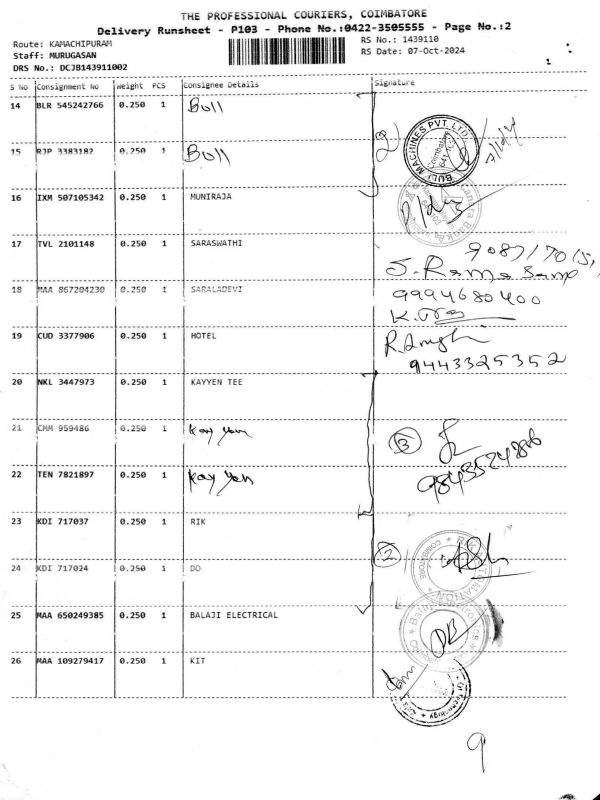 THE PROFESSIONAL COURIERS, COIMBATORE
Delivery Runsheet - P103 - Phone No.:0422-3505555 - Page No.:2
Route: KAMACHIPURAM
RS No.: 1439110
Staff: MURUGASAN
RS Date: 07-Oct-2024
DRS No.: DCJB143911002
1
S No Consignment No Weight PCS Consignee Details Signature
14 BLR 545242766 0.250 1 Bull
15 RJP 3383182 0.250 1 Bull
BULL MACHINES PVT. LTD. Coimbatore
16 IXM 507105342 0.250 1 MUNIRAJA
Canara Bank
17 TVL 2101148 0.250 1 SARASWATHI
18 MAA 867204230 0.250 1 SARALADEVI
9994680400
19 CUD 3377906 0.250 1 HOTEL
9443325352
20 NKL 3447973 0.250 1 KAYYEN TEE
21 CMM 959486 0.250 1 Kay Yen
3
22 TEN 7821897 0.250 1 Kay Yen
23 KDI 717037 0.250 1 RIK
2
COIMBATORE
24 KDI 717024 0.250 1 DO
25 MAA 650249385 0.250 1 BALAJI ELECTRICAL
26 MAA 109279417 0.250 1 KIT
9